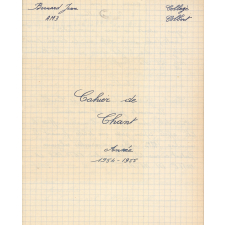 Bernard Jean
Collège
Colbert
Cahier de
Chant
Année
1954-1955